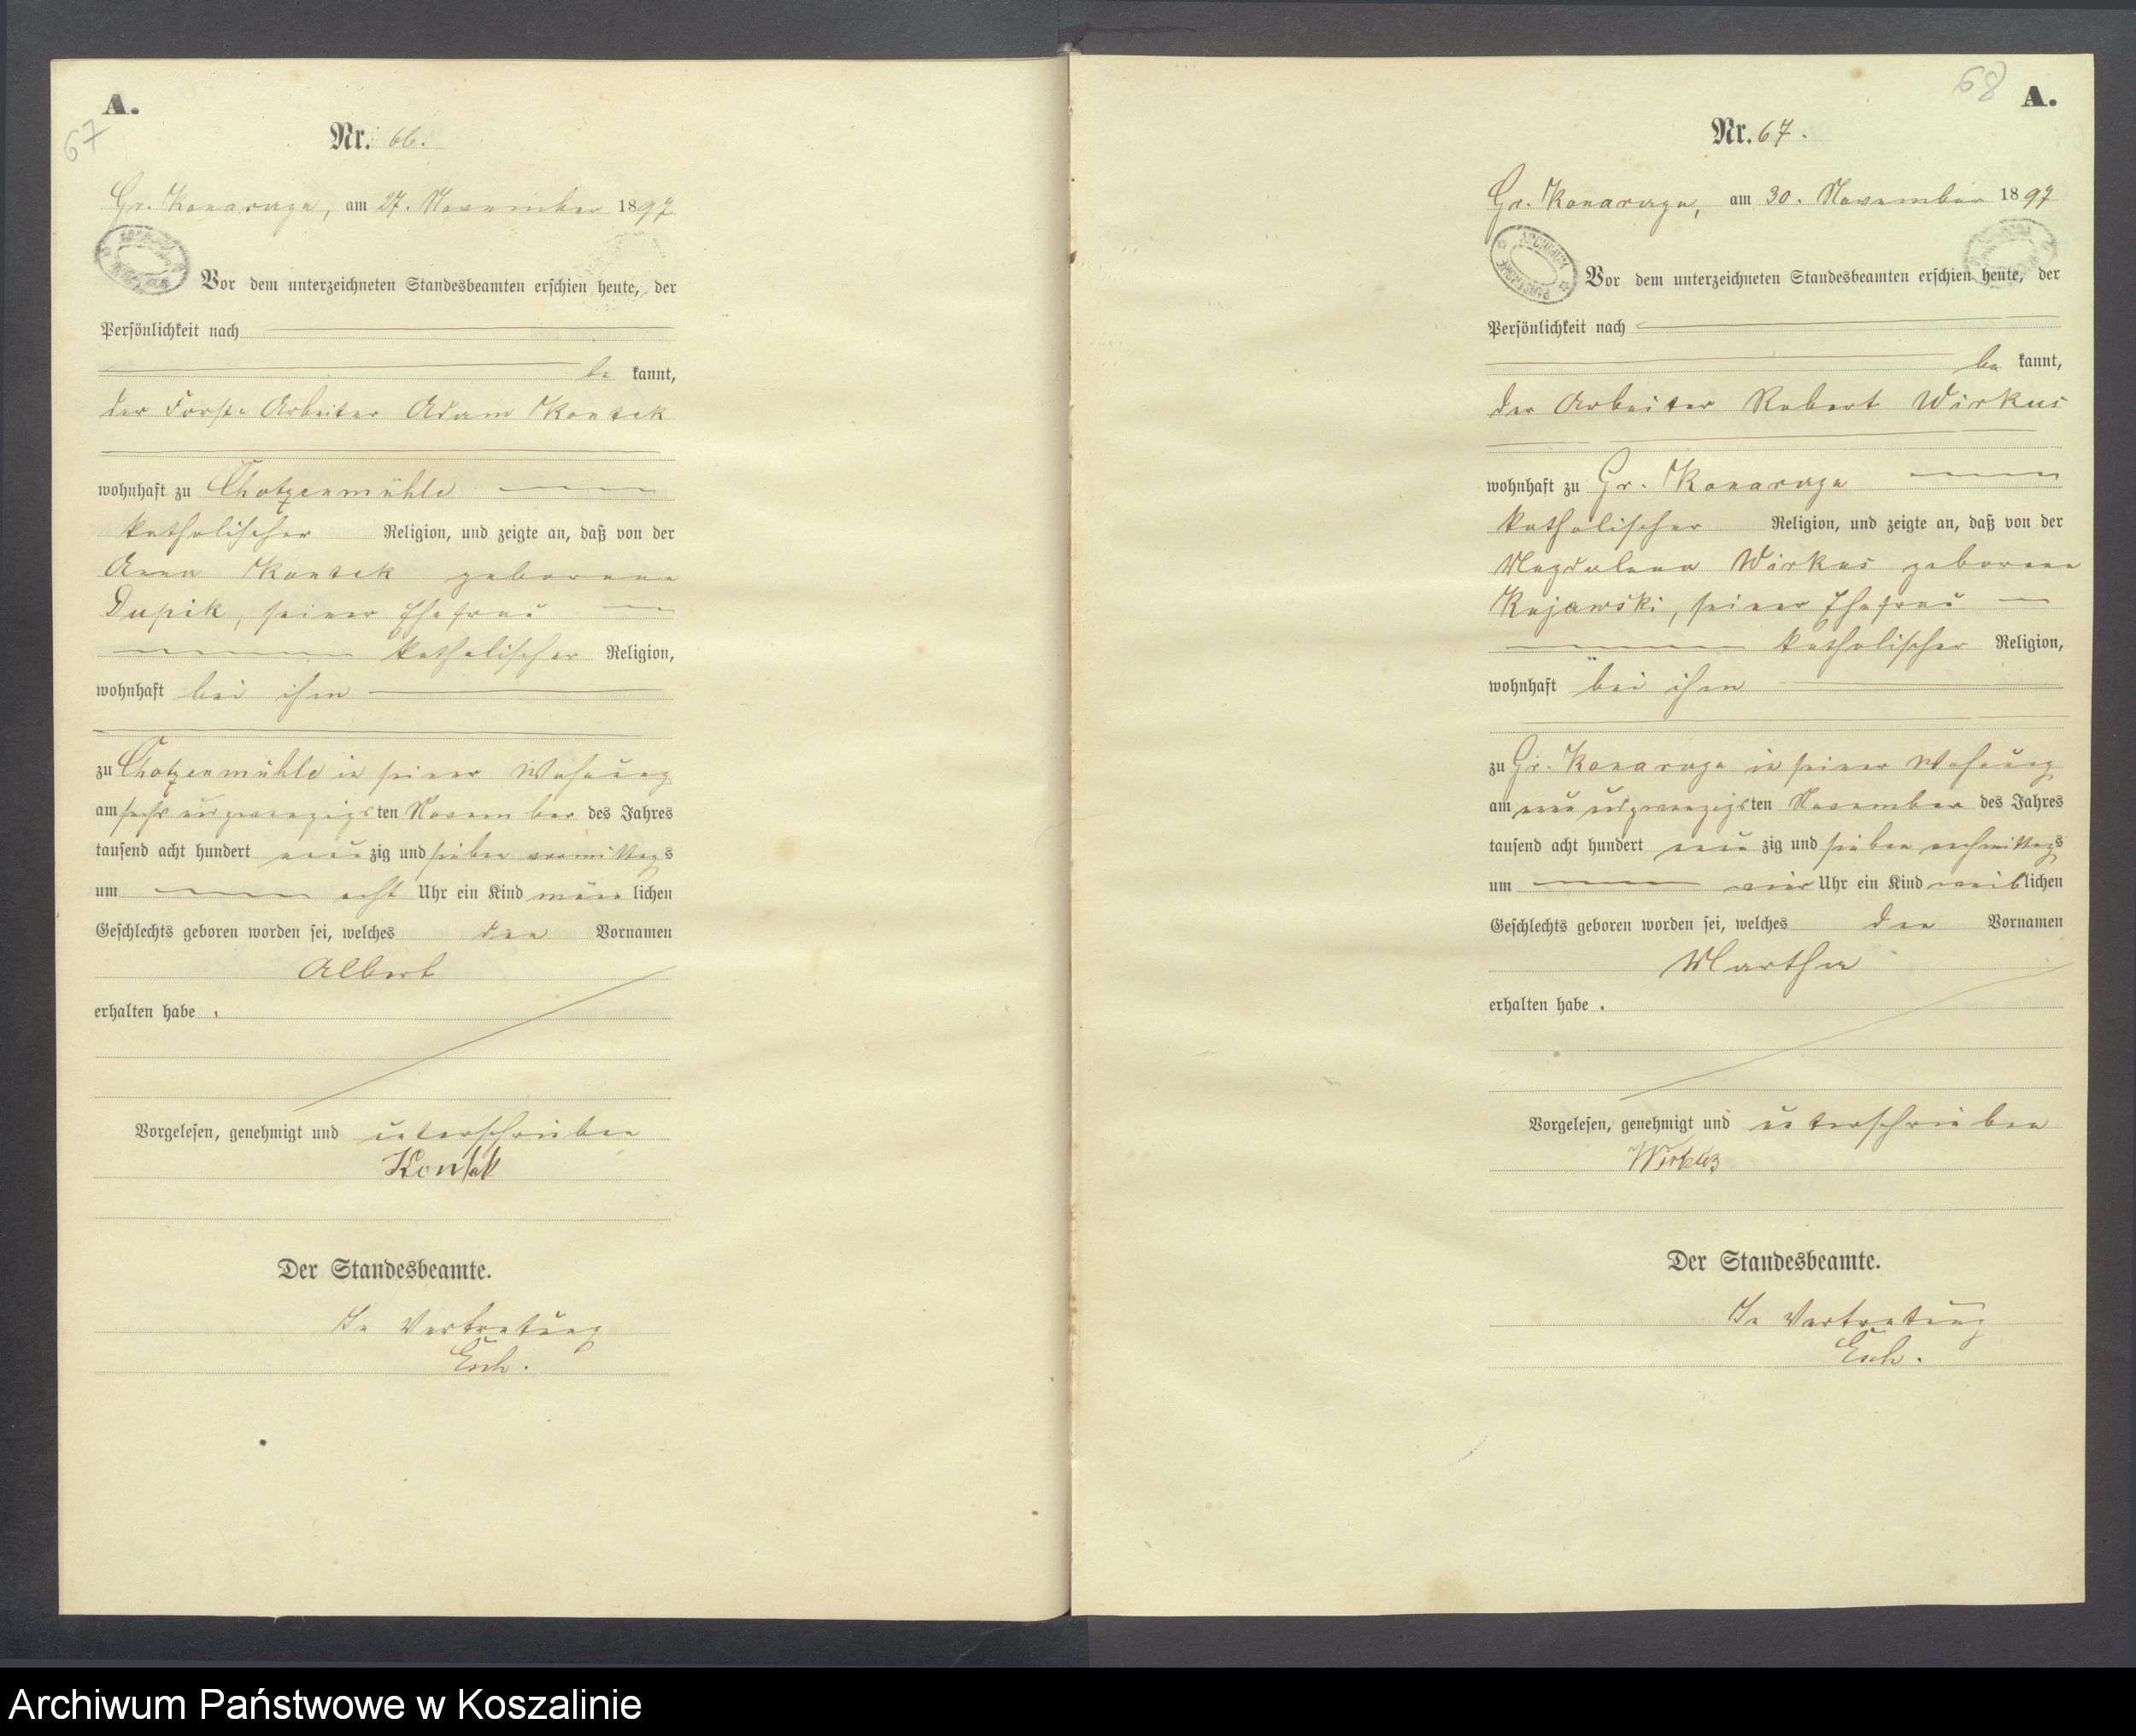 A.
67
Nr. 66.
Gr. Konarzyn, am 27. November 1897
Vor dem unterzeichneten Standesbeamten erschien heute, der
Persönlichkeit nach
be kannt,
der Forst Arbeiter Adam Kontek
wohnhaft zu Chotzenmühle
katholischer Religion, und zeigte an, daß von der
Anna Kontek geborene
Dupik, seiner Ehefrau
katholischer Religion,
wohnhaft bei ihm
zu Chotzenmühle in seiner Wohnung
am sechsundzwanzigsten November des Jahres
tausend acht hundert neunzig und sieben vormittags
um acht Uhr ein Kind männlichen
Geschlechts geboren worden sei, welches den Vornamen
Albert
erhalten habe.
Vorgelesen, genehmigt und unterschrieben
Der Standesbeamte.
In Vertretung
68
A.
Nr. 67.
Gr. Konarzyn, am 30. November 1897
Vor dem unterzeichneten Standesbeamten erschien heute, der
Persönlichkeit nach
be kannt,
der Arbeiter Robert Wirkus
wohnhaft zu Gr. Konarzyn
katholischer Religion, und zeigte an, daß von der
Magdalena Wirkus geborene
Kujawski, seiner Ehefrau
katholischer Religion,
wohnhaft bei ihm
zu Gr. Konarzyn in seiner Wohnung
am neunundzwanzigsten November des Jahres
tausend acht hundert neunzig und sieben nachmittags
um vier Uhr ein Kind weiblichen
Geschlechts geboren worden sei, welches den Vornamen
Martha
erhalten habe.
Vorgelesen, genehmigt und unterschrieben
Wirkus
Der Standesbeamte.
In Vertretung
Archiwum Państwowe w Koszalinie